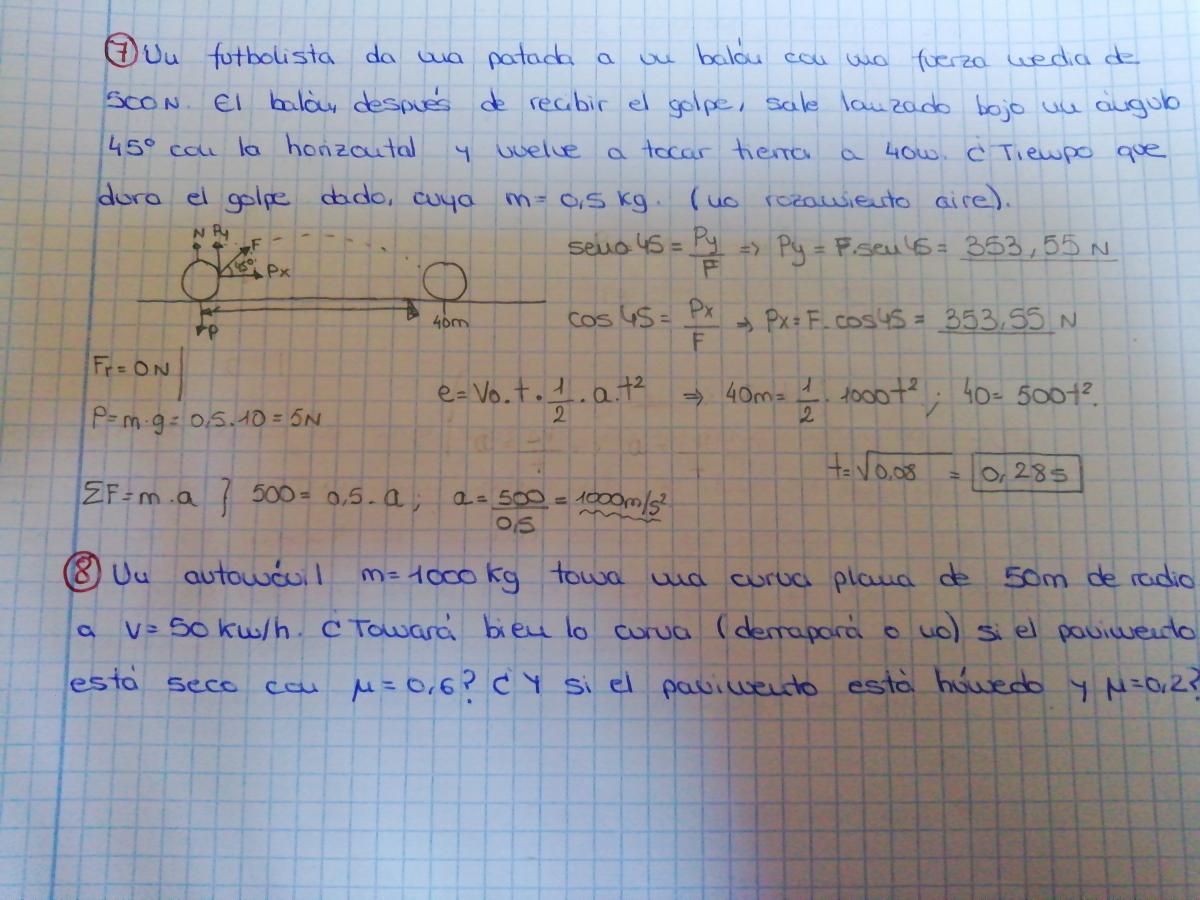 ⑦ Un futbolista da una patada a un balón con una fuerza media de
500N. El balón, después de recibir el golpe, sale lanzado bajo un ángulo
45º con la horizontal y vuelve a tocar tierra a 40m. ¿Tiempo que
dura el golpe dado, cuya m= 0,5 kg. (no rozamiento aire).
N Py F 45º Px
P 40m
seno 45 = Py/F => Py = F.sen45 = 353,55 N
cos 45 = Px/F → Px = F.cos45 = 353,55 N
Fr = 0N
P=m.g= 0,5.10 = 5N
e= Vo.t.1/2.a.t² => 40m= 1/2.1000t²; 40= 500t².
t=√0,08 = 0,28s
ΣF=m.a } 500= 0,5.a; a= 500/0,5 = 1000m/s²
⑧ Un automóvil m= 1000 kg toma una curva plana de 50m de radio
a v= 50 km/h. ¿Tomará bien la curva (derrapará o no) si el pavimento
está seco con μ= 0,6? ¿Y si el pavimento está húmedo y μ=0,2?